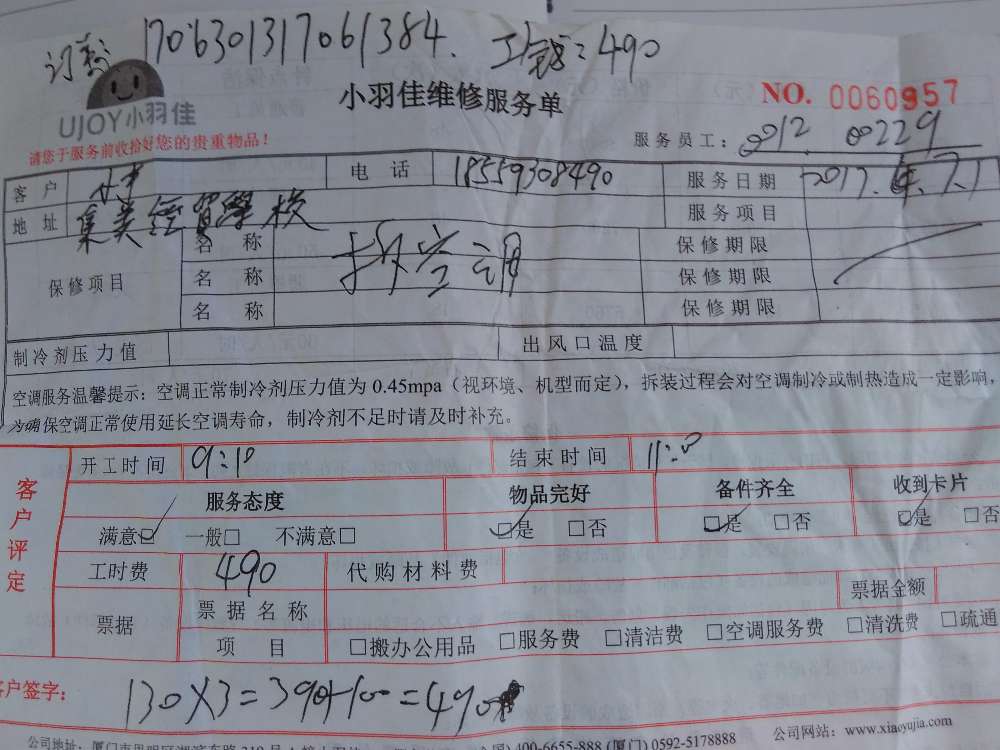 1706301317061384. 工钱:490
UJOY小羽佳
小羽佳维修服务单
NO. 0060957
请您于服务前收拾好您的贵重物品!
服务员工: 0012. 00229
客 户 电 话 18559308490 服务日期 2017.
地 址 集美 学校 服务项目
保修项目 名 称 拆空调 保修期限
名 称 保修期限
名 称 保修期限
制冷剂压力值 出风口温度
空调服务温馨提示:空调正常制冷剂压力值为 0.45mpa(视环境、机型而定),拆装过程会对空调制冷或制热造成一定影响,
为确保空调正常使用延长空调寿命,制冷剂不足时请及时补充。
客户评定
开工时间 9:10 结束时间
服务态度 物品完好 备件齐全 收到卡片
满意☑ 一般□ 不满意□ ☑是 □否 ☑是 □否 ☑是 □否
工时费 490 代购材料费
票据 票据名称 票据金额
项 目 □搬办公用品 □服务费 □清洁费 □空调服务费 □清洗费 □疏通
客户签字: 130×3=390+100=490
公司地址: 400-6655-888 (厦门) 0592-5178888 公司网站:www.xiaoyujia.com